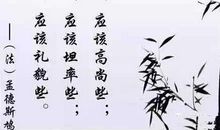 应该高尚些；
应该坦率些；
应该礼貌些。
——（法）孟德斯鸠